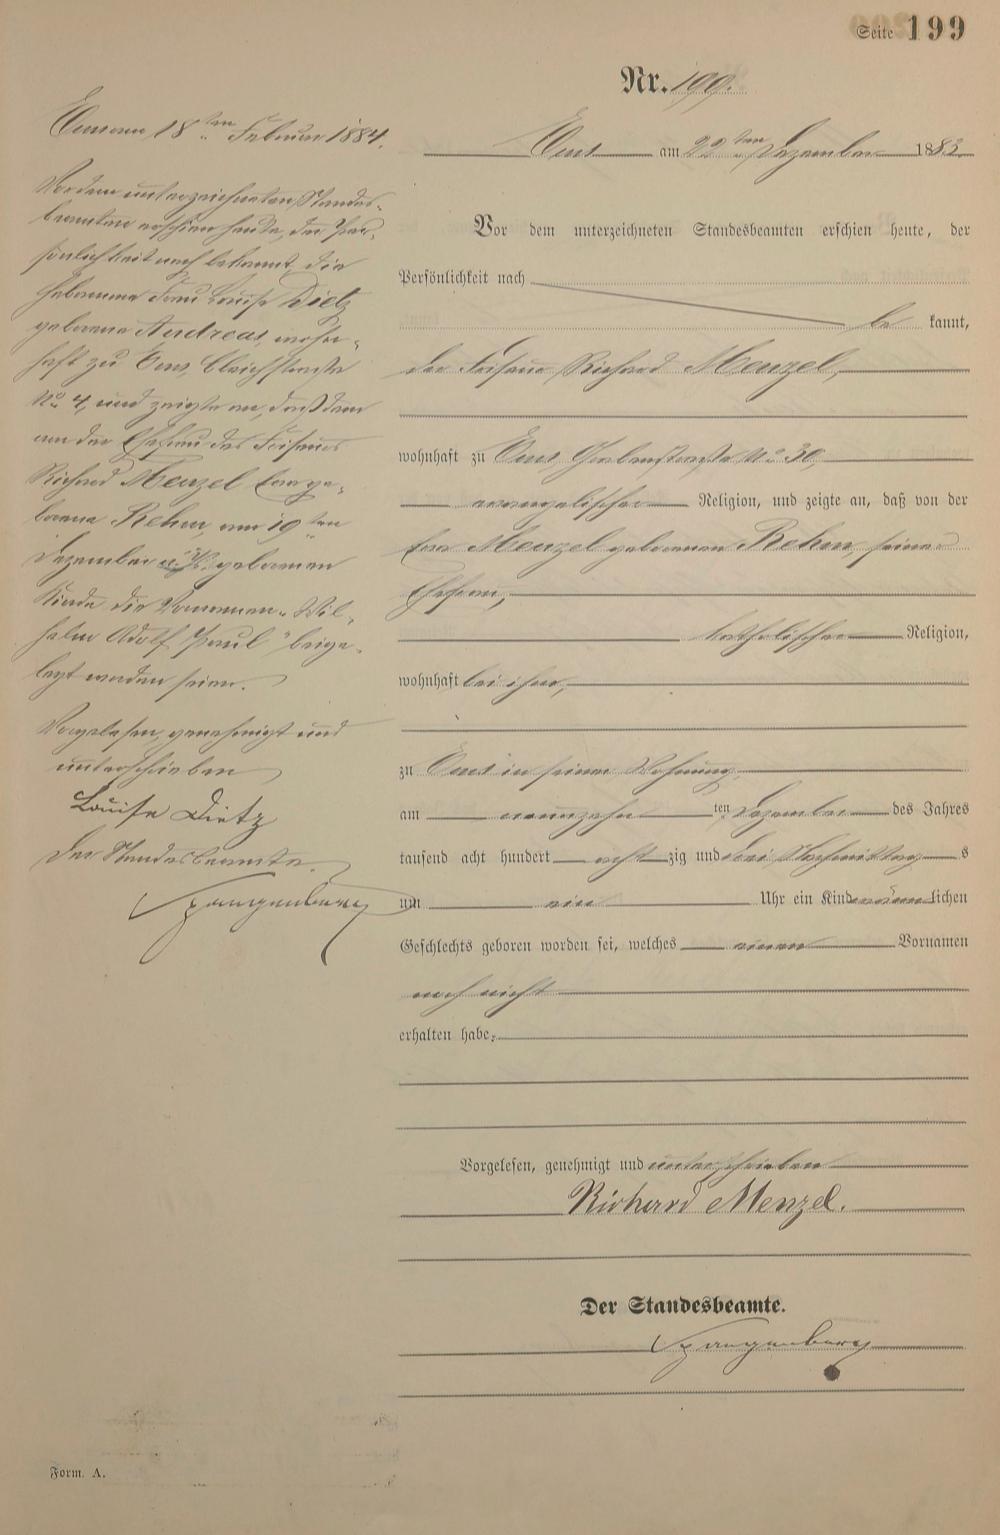 Seite 199
Nr. 199.
Ems am 22ten Dezember 1883.
Vor dem unterzeichneten Standesbeamten erschien heute, der
Persönlichkeit nach
be kannt,
der Friseur Richard Menzel,
wohnhaft zu Ems, Grabenstraße No 30
evangelischer Religion, und zeigte an, daß von der
Menzel geborenen Rehm, seiner
Ehefrau,
katholischer Religion,
wohnhaft bei ihm,
zu Ems in seiner Wohnung,
am neunzehn ten Dezember des Jahres
tausend acht hundert acht zig und drei Nachmittag s
um ein Uhr ein Kind männ lichen
Geschlechts geboren worden sei, welches einen Vornamen
noch nicht
erhalten habe.
Vorgelesen, genehmigt und unterschrieben
Richard Menzel.
Der Standesbeamte.
Spangenberg
Ems am 18ten Februar 1884.
Vor dem unterzeichneten Standes-
beamten erschien heute, der Per-
sönlichkeit nach bekannt, die
Hebamme Frau Louise Dietz
geborene Andreas, wohn-
haft zu Ems, Bleichstraße
No 4, und zeigte an, daß dem
von der Ehefrau des Friseurs
Richard Menzel ge-
borene Rehm, am 19ten
Dezember geborenen
Kinde die Vornamen „Wil-
helm Adolf Paul" beige-
legt worden seien.
Vorgelesen, genehmigt und
unterschrieben
Louise Dietz
Der Standesbeamte.
Spangenberg
Form. A.